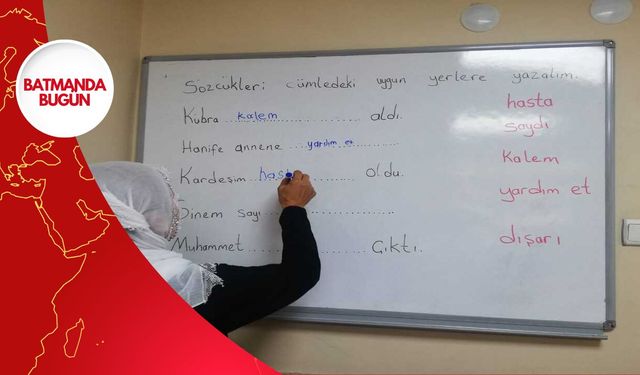 BATMANDA
BUGÜN
Sözcükleri cümledeki uygun yerlere yazalım.
Kübra kalem aldı.
Hanife annene yardım et
Kardeşim has oldu.
Sinem sayı
Muhammet Çıktı.
hasta
saydı
Kalem
yardım et
dışarı